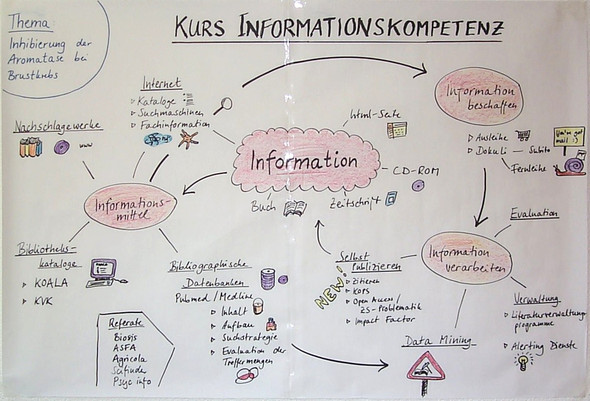 Thema
Inhibierung der
Aromatase bei
Brustkrebs
KURS INFORMATIONSKOMPETENZ
Internet
Kataloge
Suchmaschinen
Fachinformation
Nachschlagewerke
www
Informations-
mittel
Information
html-Seite
CD-ROM
Zeitschrift
Buch
Information
beschaffen
Ausleihe
Dokuli — Subito
Fernleihe
You've got
mail :)
Evaluation
Information
verarbeiten
Verwaltung
Literaturverwaltungs-
programme
Alerting Dienste
Selbst
publizieren
NEW!
Zitieren
KOPS
Open Access /
ZS-Problematik
Impact Factor
Data Mining
Bibliotheks-
kataloge
KOALA
KVK
Bibliographische
Datenbanken
Pubmed / Medline
Inhalt
Aufbau
Suchstrategie
Evaluation der
Treffermengen
Referate
Biosis
ASFA
Agricola
Scifinde
Psyc info